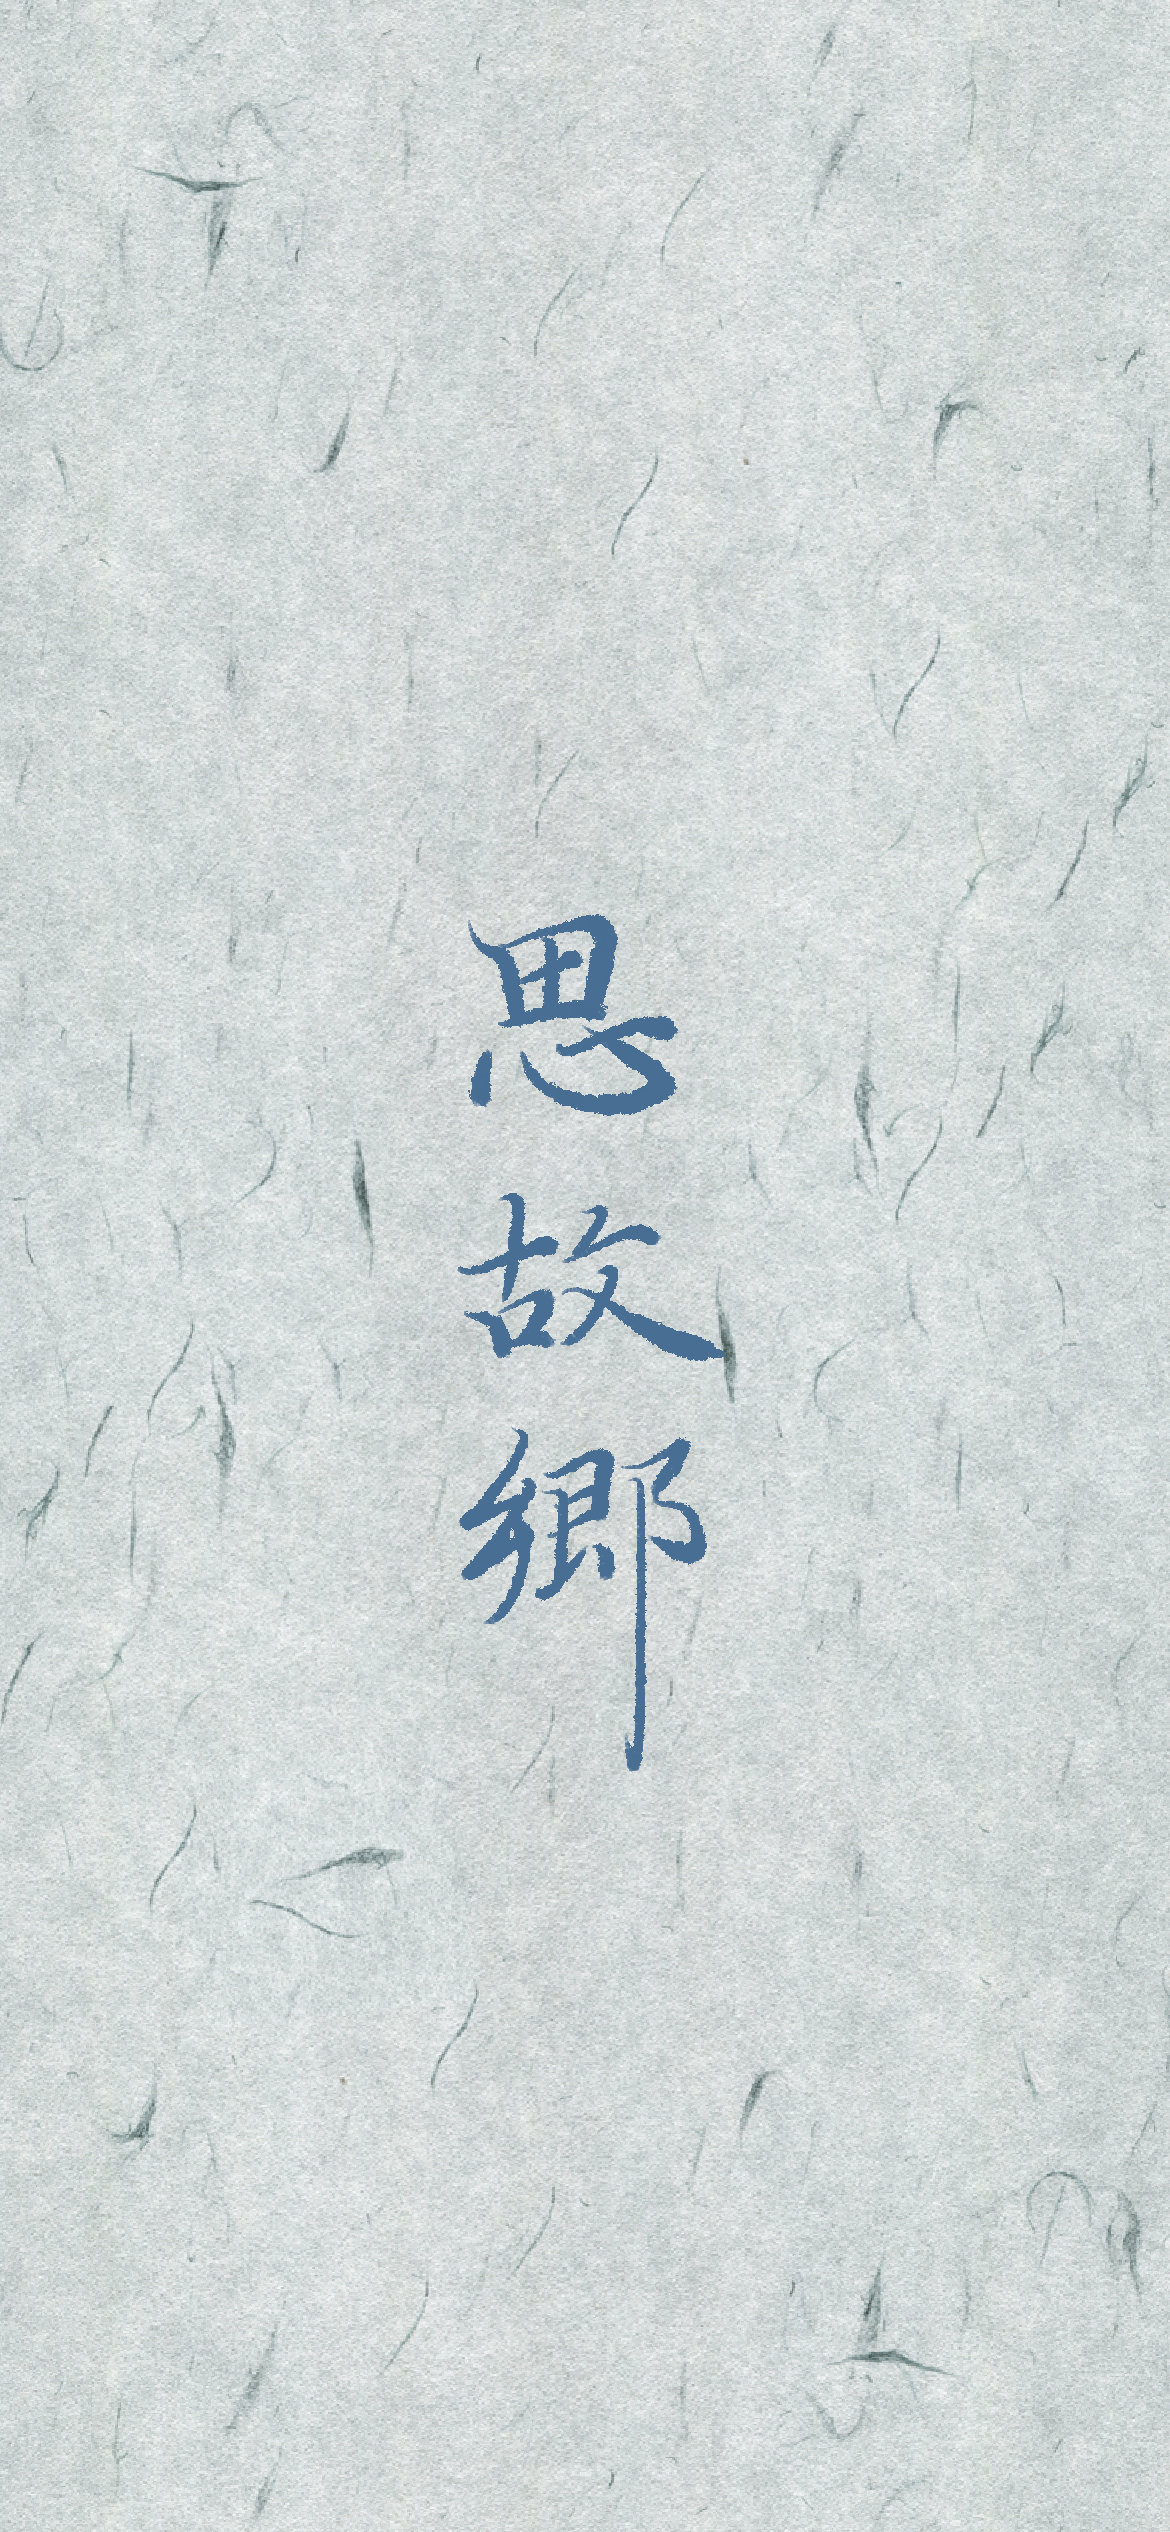 思故鄉